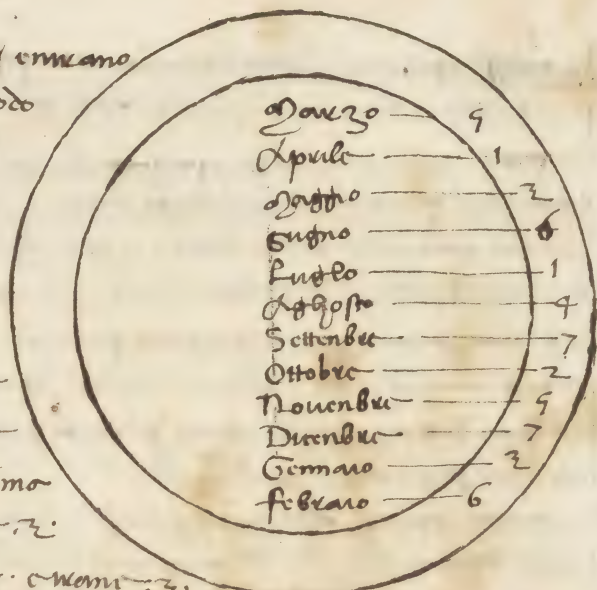 entrano
Marzo 5
Aprile 1
Maggio 3
Gugno 6
Luglo 1
Aghosto 4
Settenbre 7
Ottobre 2
Novenbre 5
Dicenbre 7
Gennaio 3
Febraio 6